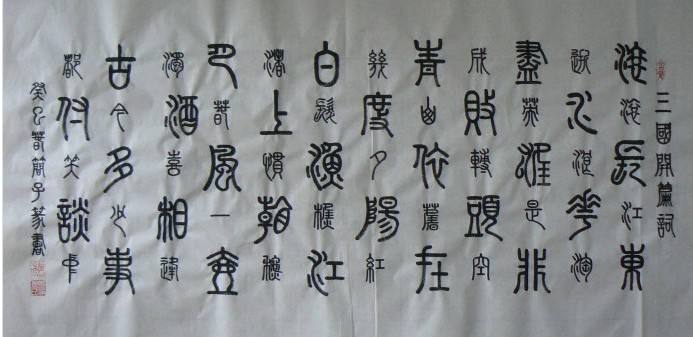 三國開篇詞
滾滾長江東
逝水浪花淘
盡英雄是非
成敗轉頭空
青山依舊在
幾度夕陽紅
白髮漁樵江
渚上慣看秋
月春風一壺
濁酒喜相逢
古今多少事
都付笑談中
癸巳春子篆書